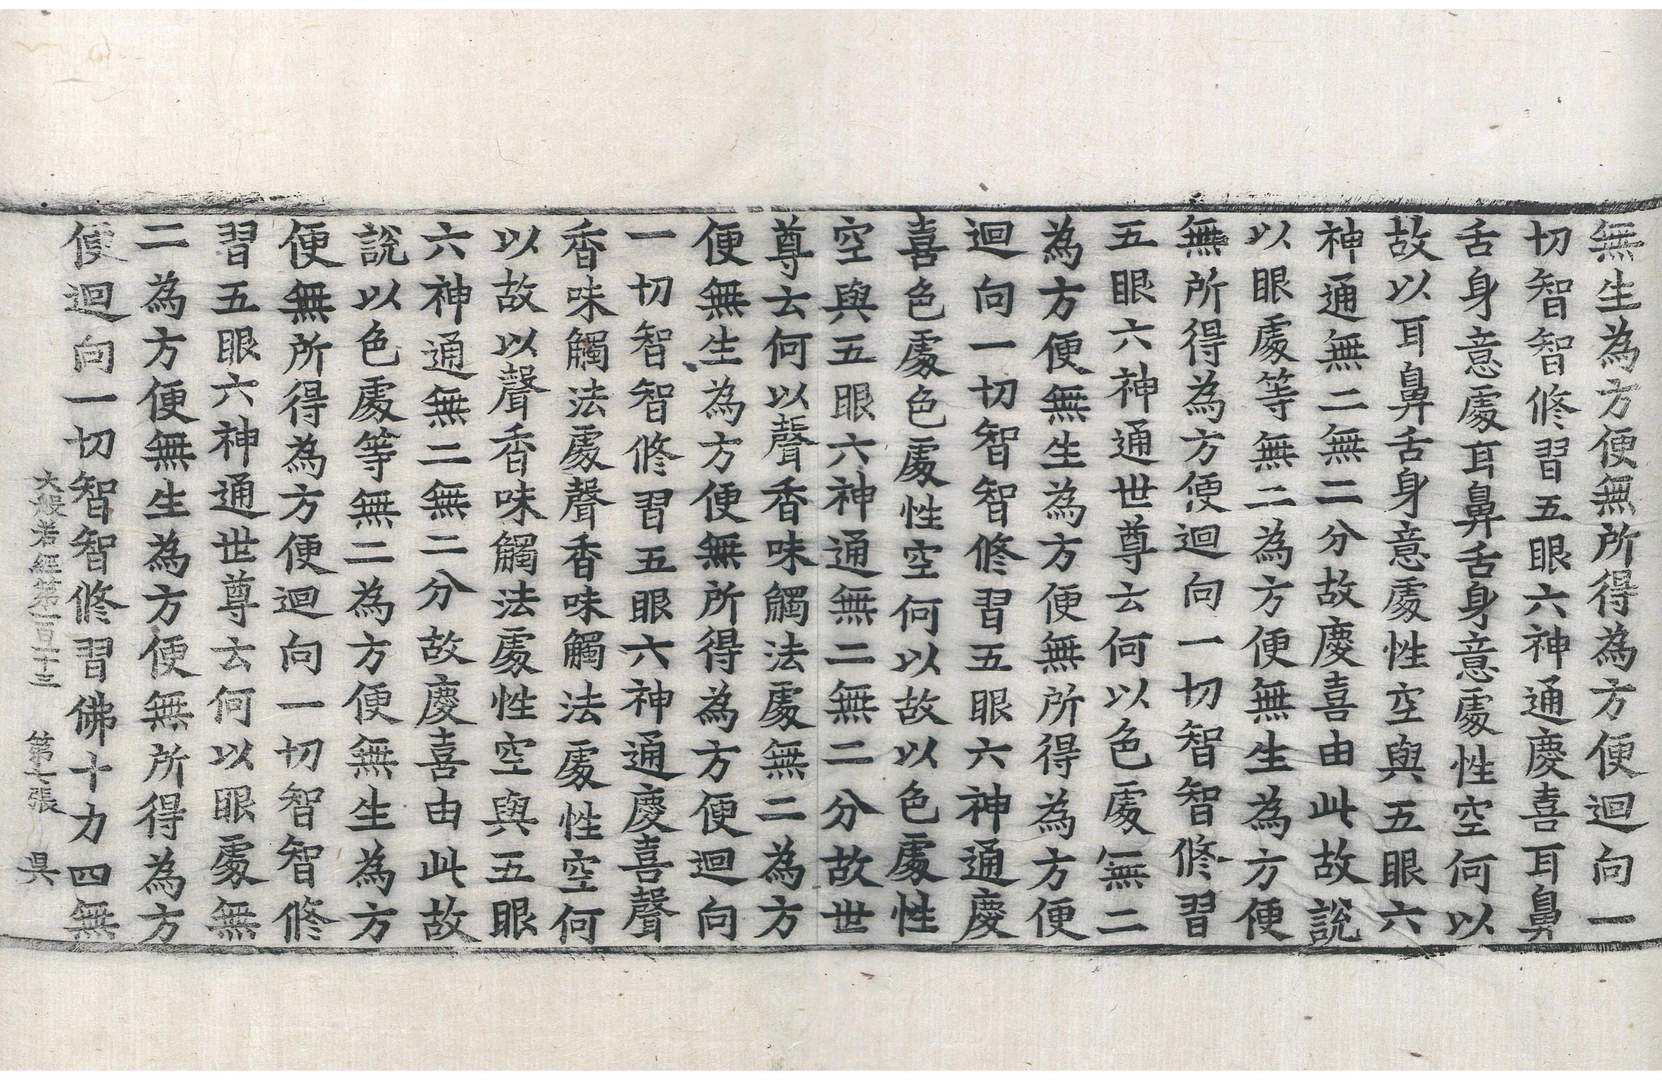 無生為方便無所得為方便迴向一
切智智修習五眼六神通慶喜耳鼻
舌身意處耳鼻舌身意處性空何以
故以耳鼻舌身意處性空與五眼六
神通無二無二分故慶喜由此故說
以眼處等無二為方便無生為方便
無所得為方便迴向一切智智修習
五眼六神通世尊云何以色處無二
為方便無生為方便無所得為方便
迴向一切智智修習五眼六神通慶
喜色處色處性空何以故以色處性
空與五眼六神通無二無二分故世
尊云何以聲香味觸法處無二為方
便無生為方便無所得為方便迴向
一切智智修習五眼六神通慶喜聲
香味觸法處聲香味觸法處性空何
以故以聲香味觸法處性空與五眼
六神通無二無二分故慶喜由此故
說以色處等無二為方便無生為方
便無所得為方便迴向一切智智修
習五眼六神通世尊云何以眼處無
二為方便無生為方便無所得為方
便迴向一切智智修習佛十力四無
大般若經第一百十三 第七張 㫷